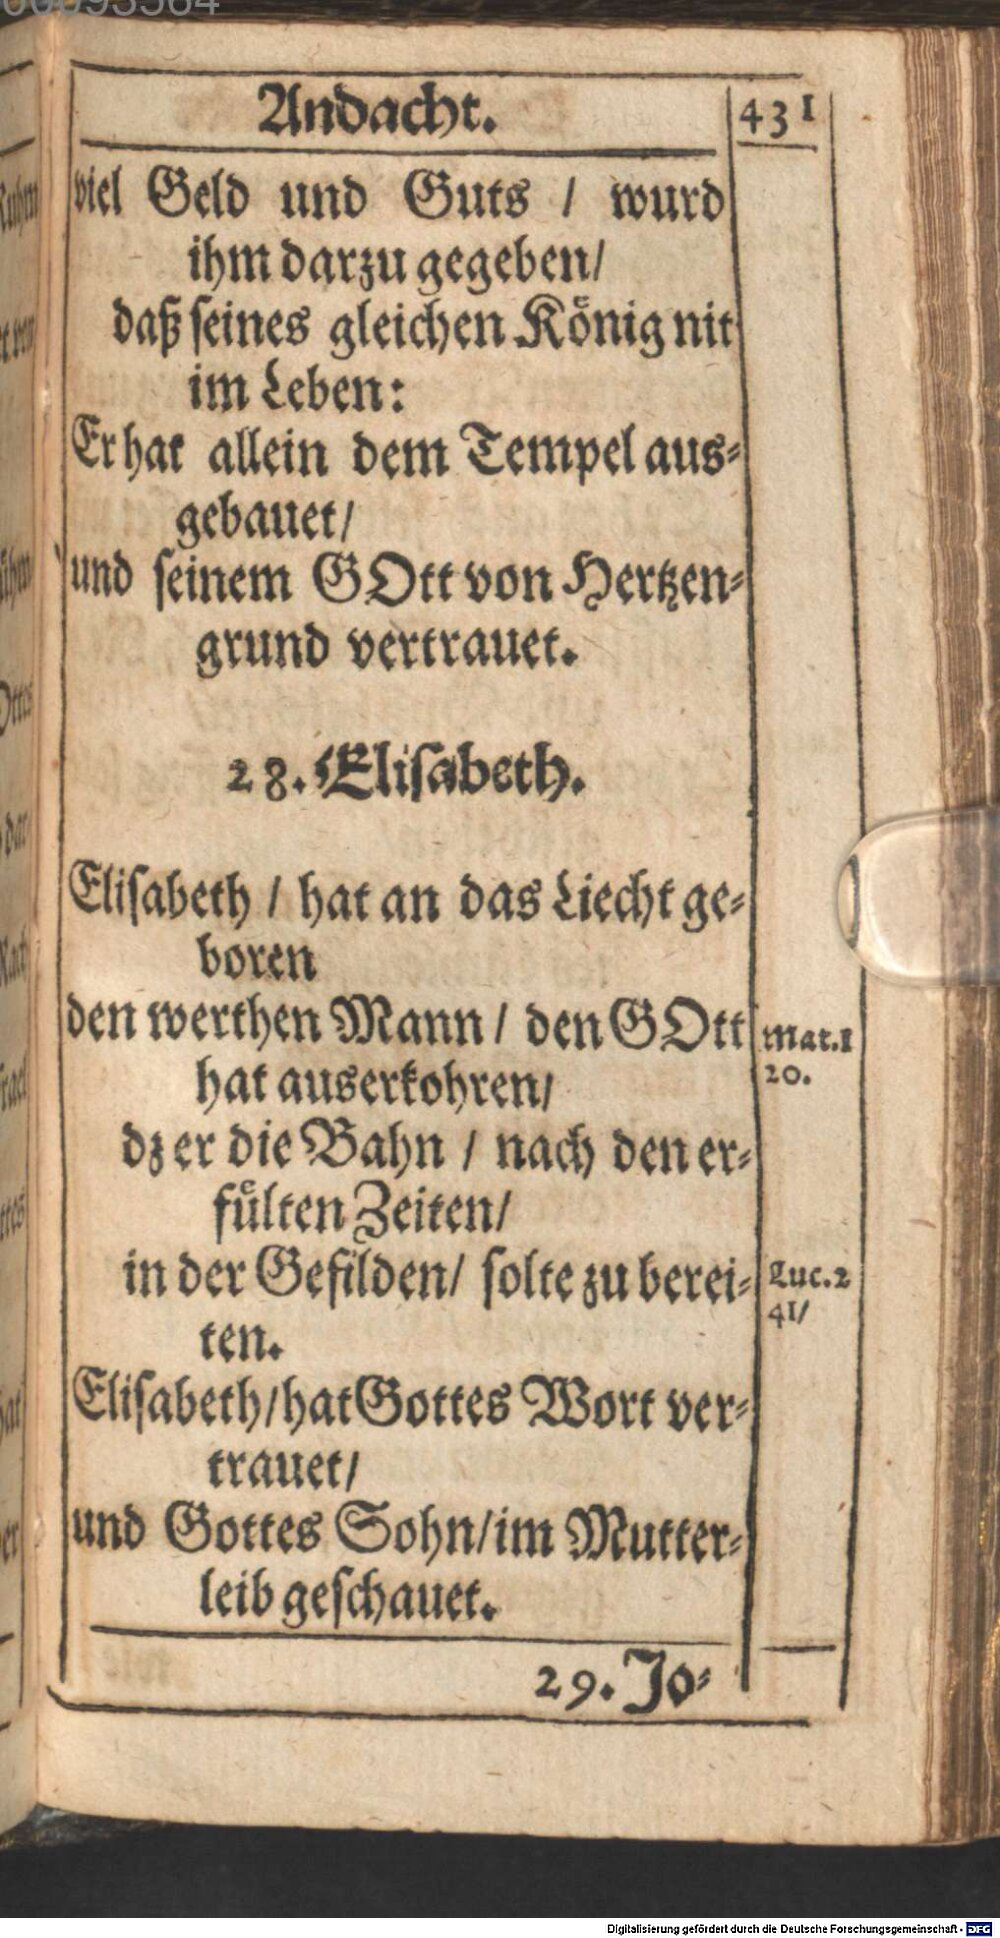 Andacht. 431
viel Geld und Guts / wurd
ihm darzu gegeben/
daß seines gleichen König nit
im Leben:
Er hat allein dem Tempel aus-
gebauet/
und seinem GOtt von Hertzen-
grund vertrauet.
28. Elisabeth.
Elisabeth / hat an das Liecht ge-
boren
den werthen Mann / den GOtt
hat auserkohren/
dz er die Bahn / nach den er-
fülten Zeiten/
in der Gefilden/ solte zu berei-
ten.
Elisabeth/hat Gottes Wort ver-
trauet/
und Gottes Sohn/im Mutter-
leib geschauet.
Mat.1
20.
Luc.2
41/
29. Jo-
Digitalisierung gefördert durch die Deutsche Forschungsgemeinschaft - DFG